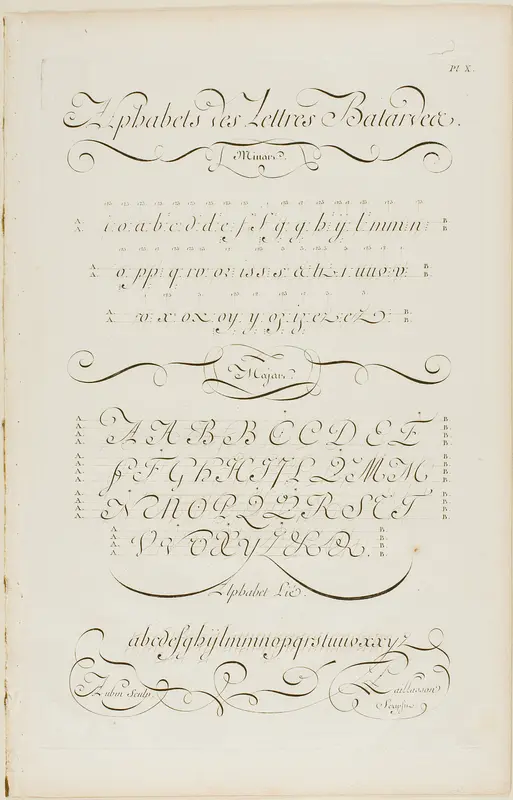 Pl. X.
Alphabets des Lettres Batardes.
Minars.
A. i o a b c d d e f ſ g g h ij l m m n B.
A. B.
A. o p p q r v o r i s s s s & t t z 1 u u o v B.
A. B.
A. v x o x o y y o z i z e z e z B.
A. B.
Majars.
A. A A B B C C D E E B.
A. B.
A. B.
A. f F G h H I J L L M M B.
A. B.
A. B.
A. N N O P Q Q R S N T B.
A. B.
A. B.
A. V V O X y Z B.
A. B.
A. B.
Alphabet Lié.
abcdefghijlmmnopqrstuuvxxyz
Aubin Sculp.
Paillasson
Scripsit